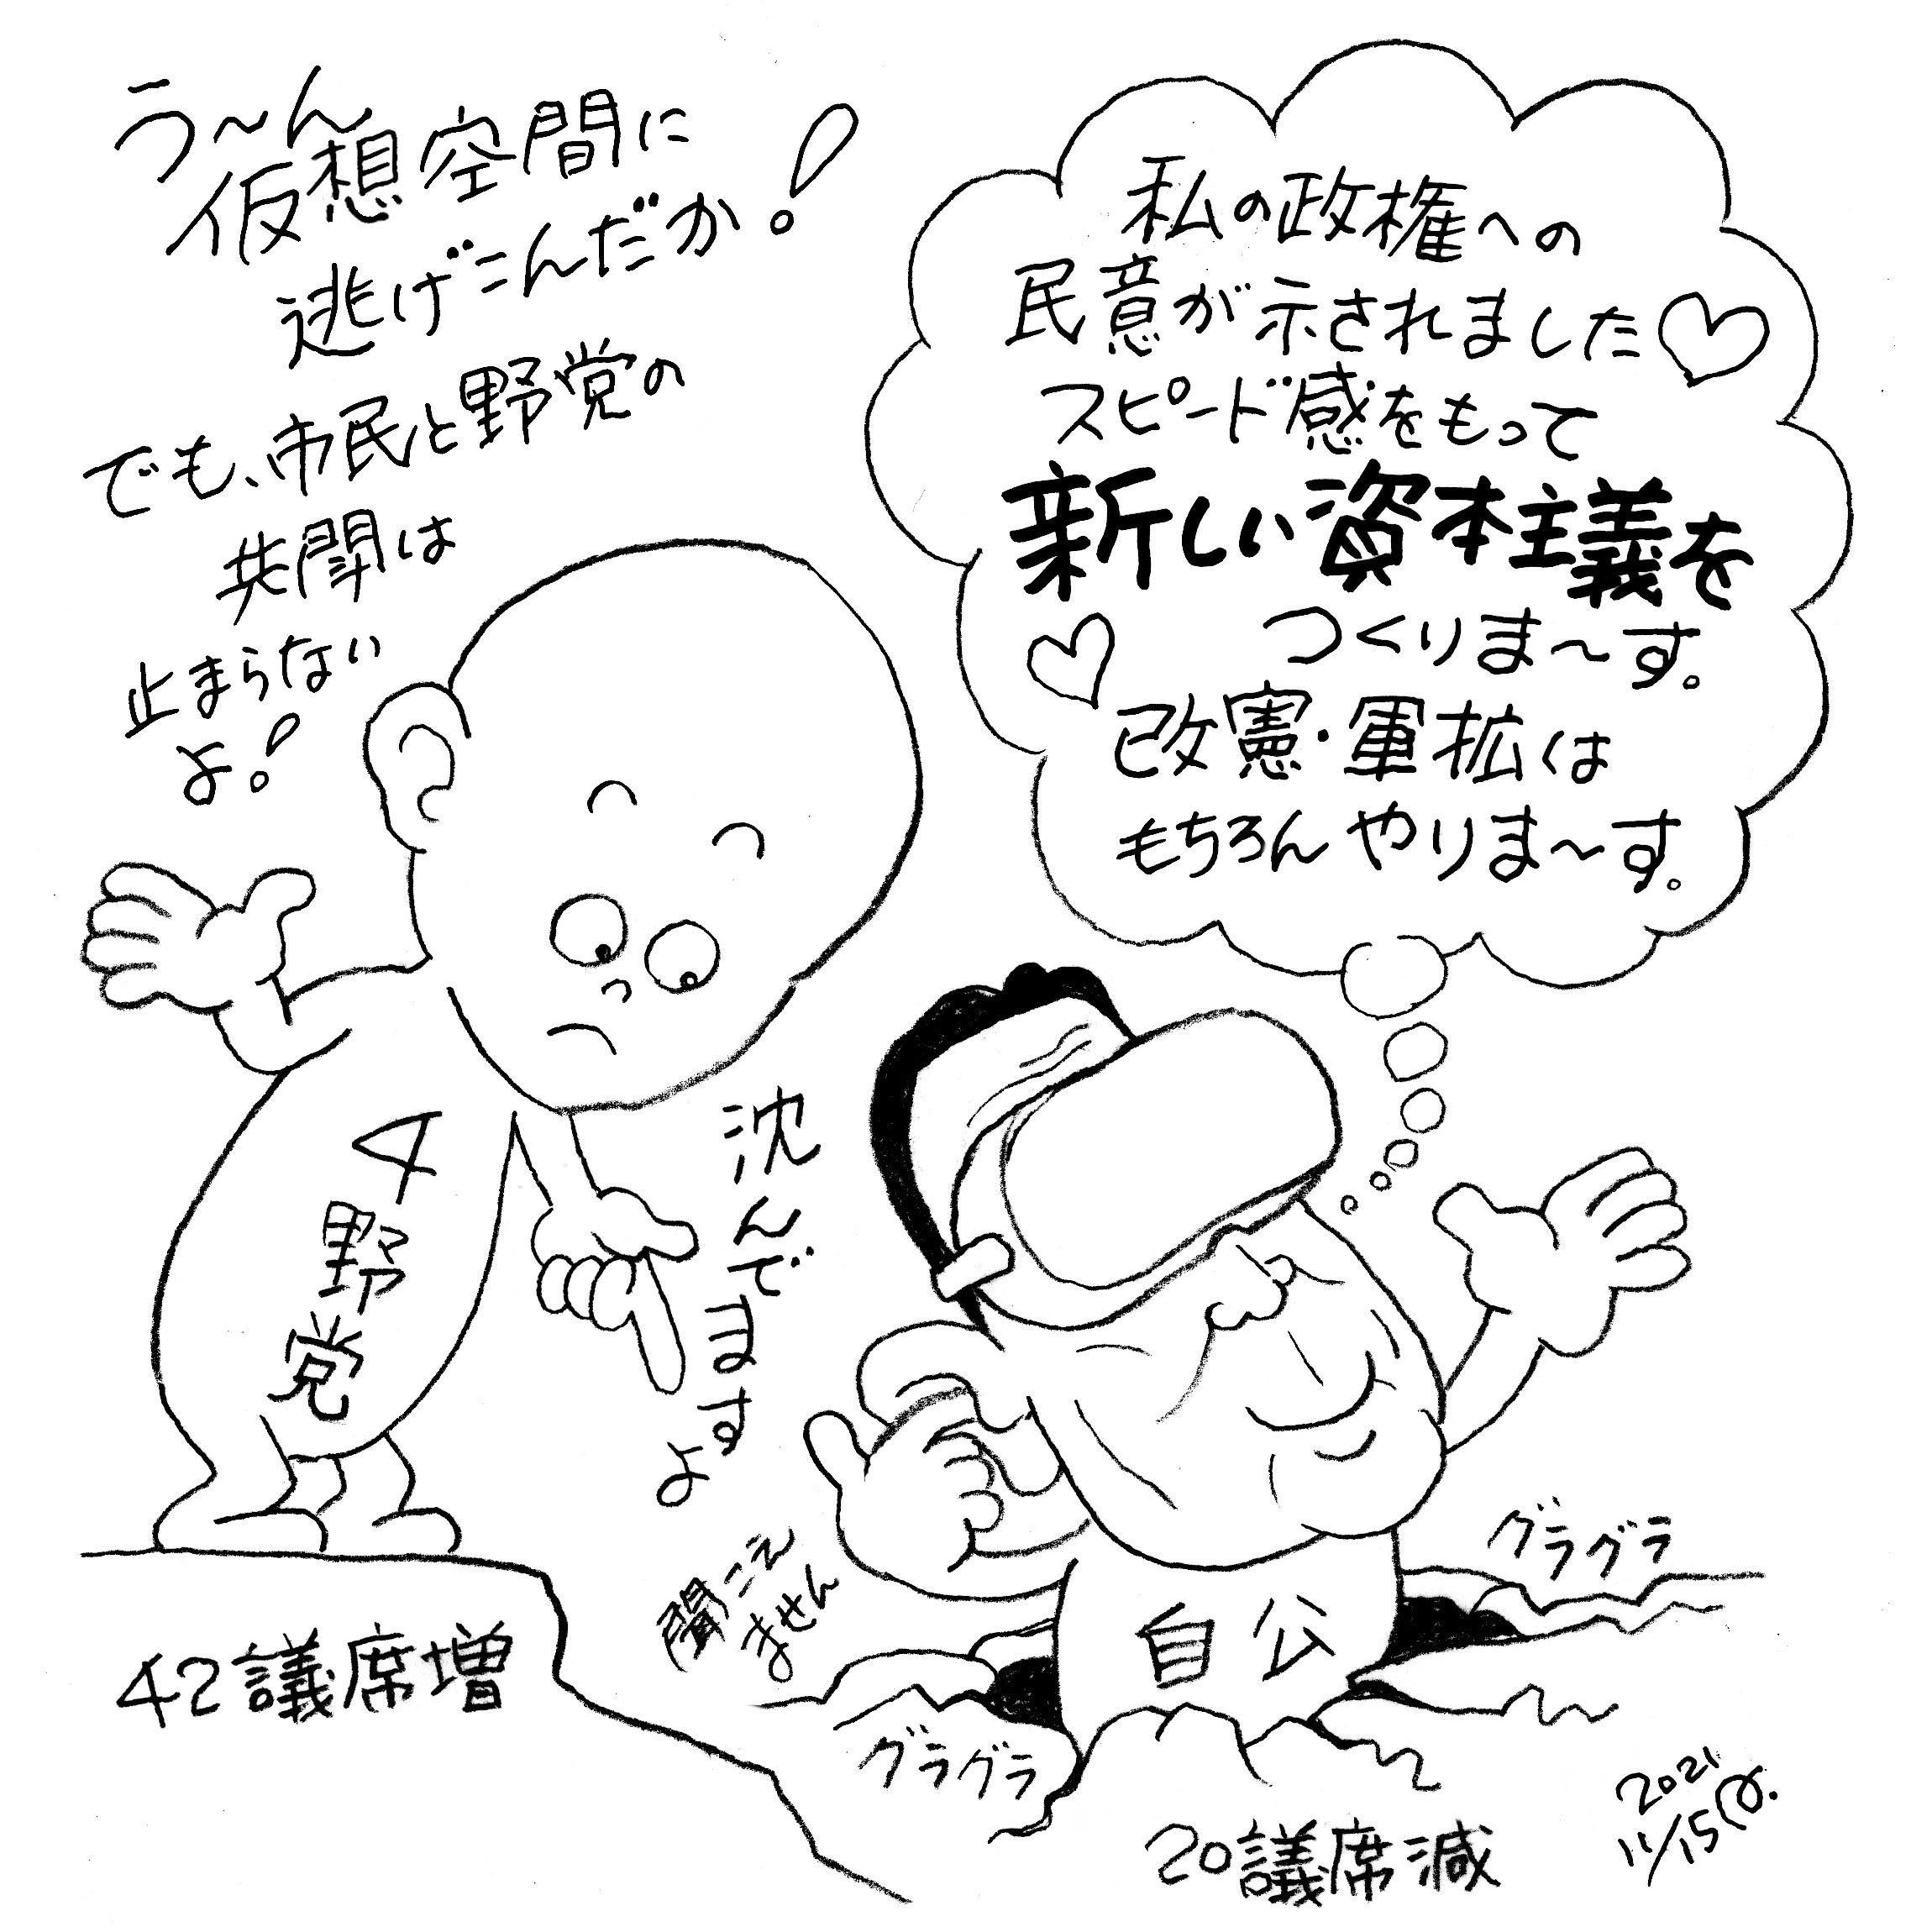 う〜ん
仮想空間に
逃げこんだか!
でも、市民と野党の
共闘は
止まらない
よ!
私の政権への
民意が示されました♡
スピード感をもって
新しい資本主義を
♡つくりま〜す。
改憲・軍拡は
もちろんやりま〜す。
4野党
沈んでますよ
聞こえ
ません
グラグラ
自公
42議席増
グラグラ
20議席減
2021
11/15